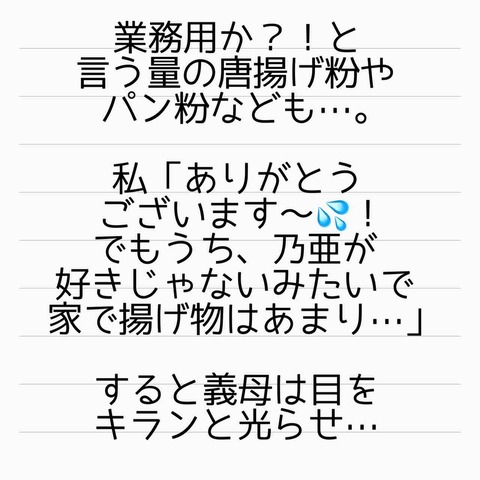 業務用か？！と
言う量の唐揚げ粉や
パン粉なども…。
私「ありがとう
ございます〜💦！
でもうち、乃亜が
好きじゃないみたいで
家で揚げ物はあまり…」
すると義母は目を
キランと光らせ…